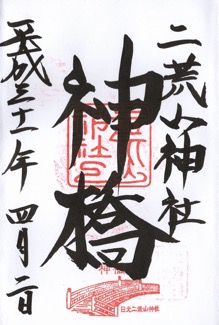 二荒山神社
神橋
平成三十一年 四月二日
神橋
日光二荒山神社